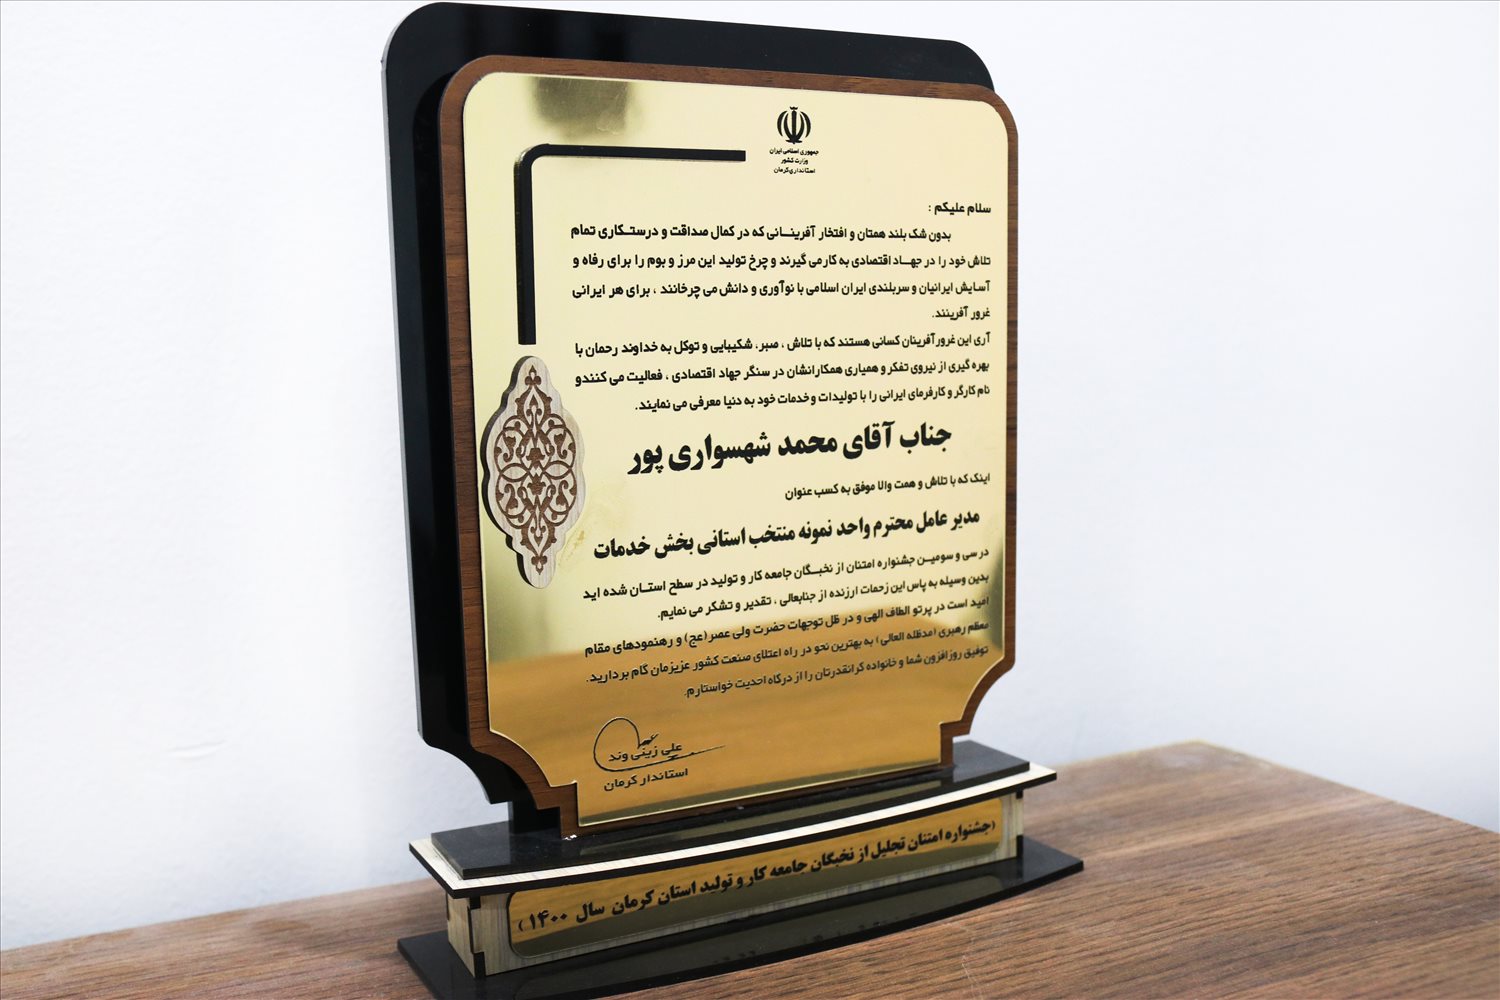 جمهوری اسلامی ایران
وزارت کشور
استانداری کرمان
سلام علیکم :
بدون شک بلند همتان و افتخار آفرینــانی که در کمال صداقت و درستــکاری تمام
تلاش خود را در جهــاد اقتصادی به کار می گیرند و چرخ تولید این مرز و بوم را برای رفاه و
آسایش ایرانیان و سربلندی ایران اسلامی با نوآوری و دانش می چرخانند ، برای هر ایرانی
غرور آفرینند.
آری این غرورآفرینان کسانی هستند که با تلاش ، صبر، شکیبایی و توکل به خداوند رحمان با
بهره گیری از نیروی تفکر و همیاری همکارانشان در سنگر جهاد اقتصادی ، فعالیت می کنندو
نام کارگر و کارفرمای ایرانی را با تولیدات و خدمات خود به دنیا معرفی می نمایند.
جناب آقای محمد شهسواری پور
اینک که با تلاش و همت والا موفق به کسب عنوان
مدیر عامل محترم واحد نمونه منتخب استانی بخش خدمات
در سی و سومیـن جشنواره امتنان از نخبــگان جامعه کار و تولید در سطح استــان شده اید
بدین وسیله به پاس این زحمات ارزنده از جنابعالی ، تقدیر و تشکر می نمایم.
امید است در پرتو الطاف الهی و در ظل توجهات حضرت ولی عصر(عج) و رهنمودهای مقام
معظم رهبری (مدظله العالی) به بهترین نحو در راه اعتلای صنعت کشور عزیزمان گام بردارید.
توفیق روز افزون شما و خانواده گرانقدرتان را از درگاه احدیت خواستارم.
علی زینی وند
استاندار کرمان
(جشنواره امتنان تجلیل از نخبگان جامعه کار و تولید استان کرمان سال ۱۴۰۰)